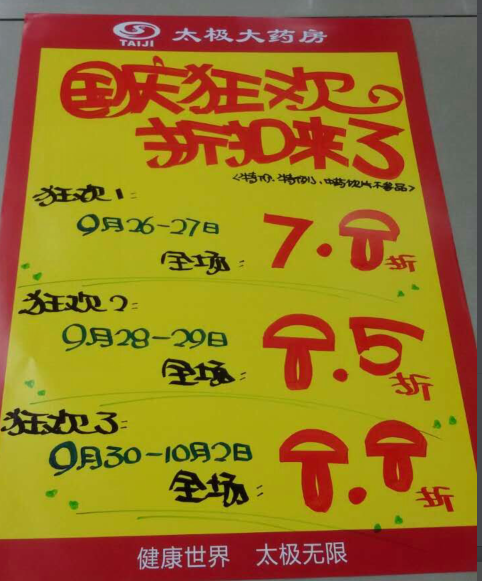 TAIJI 太极大药房
国庆狂欢
折扣来了
<特价、特例、中药饮片不参品>
狂欢1:
9月26-27日
全场: 7.8折
狂欢2:
9月28-29日
全场: 8.5折
狂欢3:
9月30-10月2日
全场: 8.8折
健康世界 太极无限